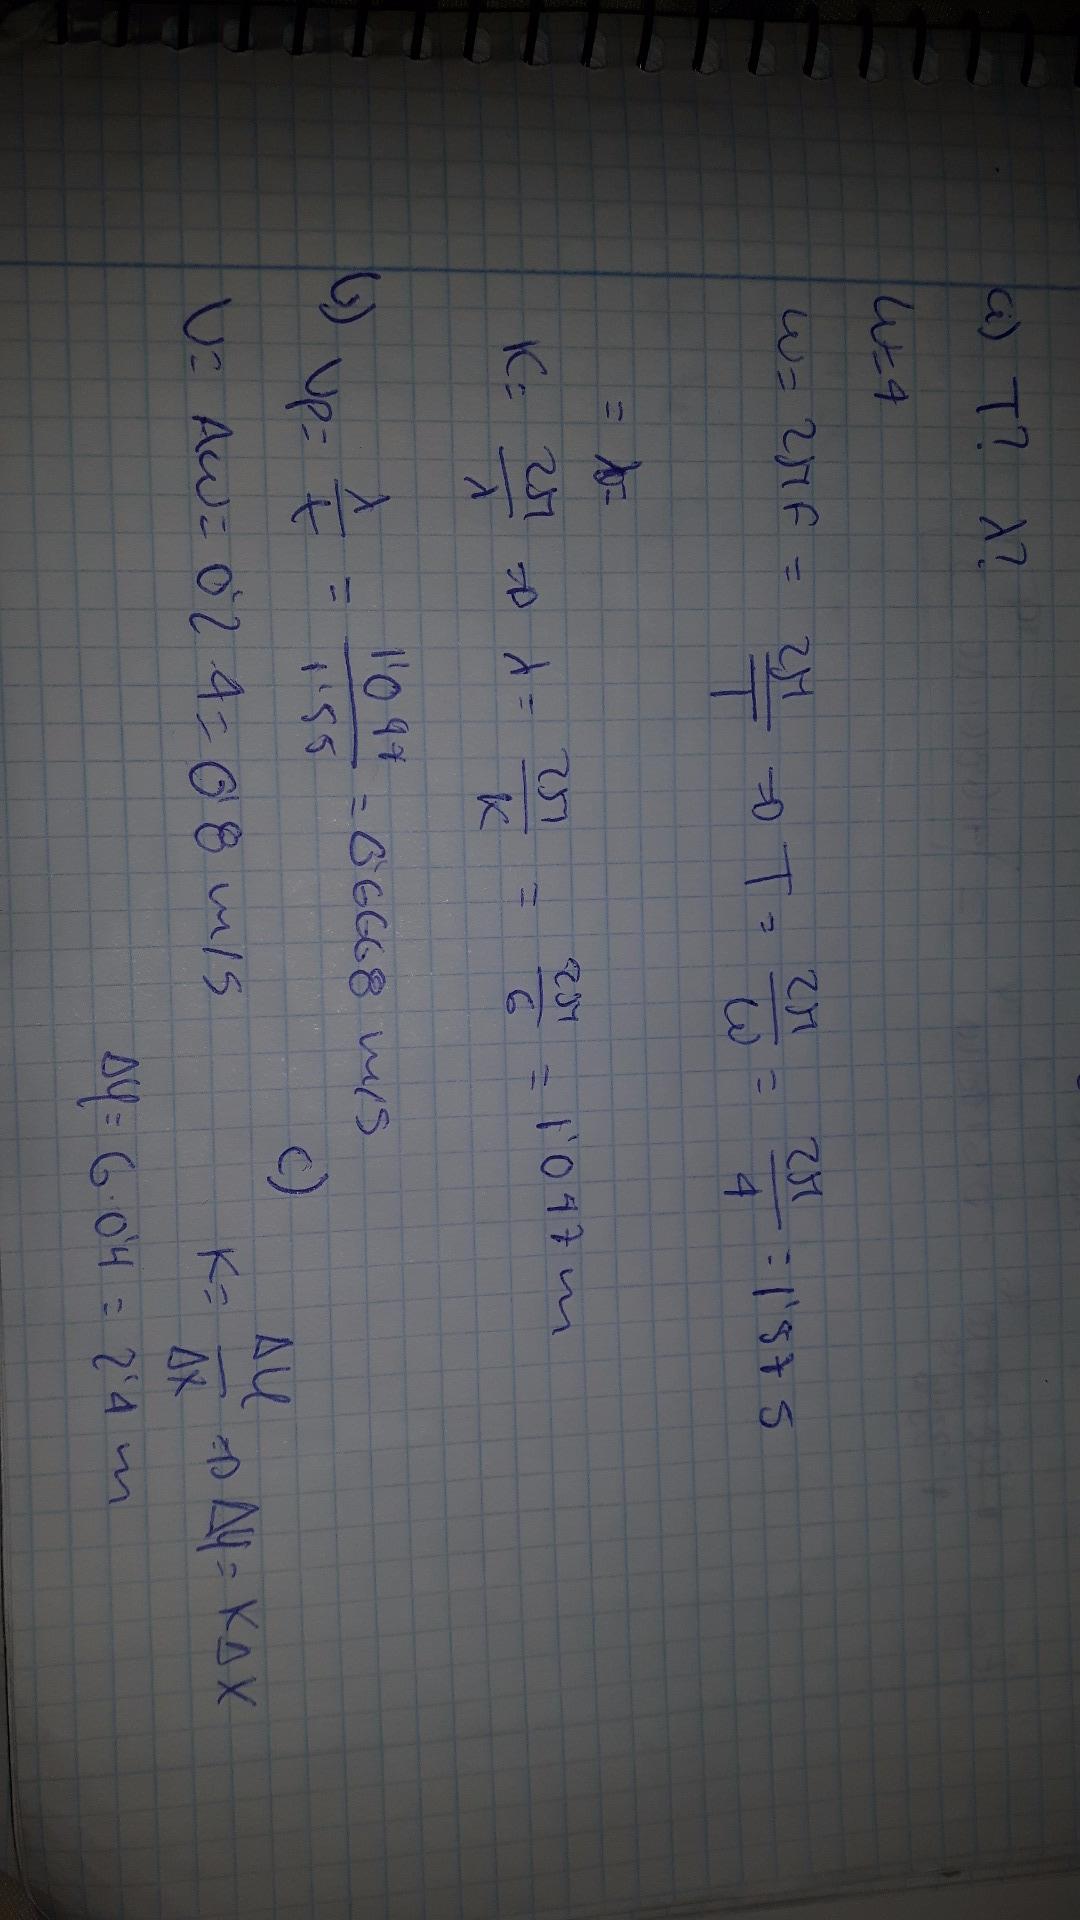 a) T? λ?
ω=4
ω = 2πf = 2π/T ⇒ T = 2π/ω = 2π/4 = 1'57 s
=
K = 2π/λ ⇒ λ = 2π/K = 2π/6 = 1'047 m
b) Vp = λ/t = 1'047/1'55 = 0'6668 m/s
V = Aω = 0'2 · 4 = 0'8 m/s
c) K = Δφ/Δx ⇒ Δφ = KΔx
Δφ = 6 · 0'4 = 2'4 m